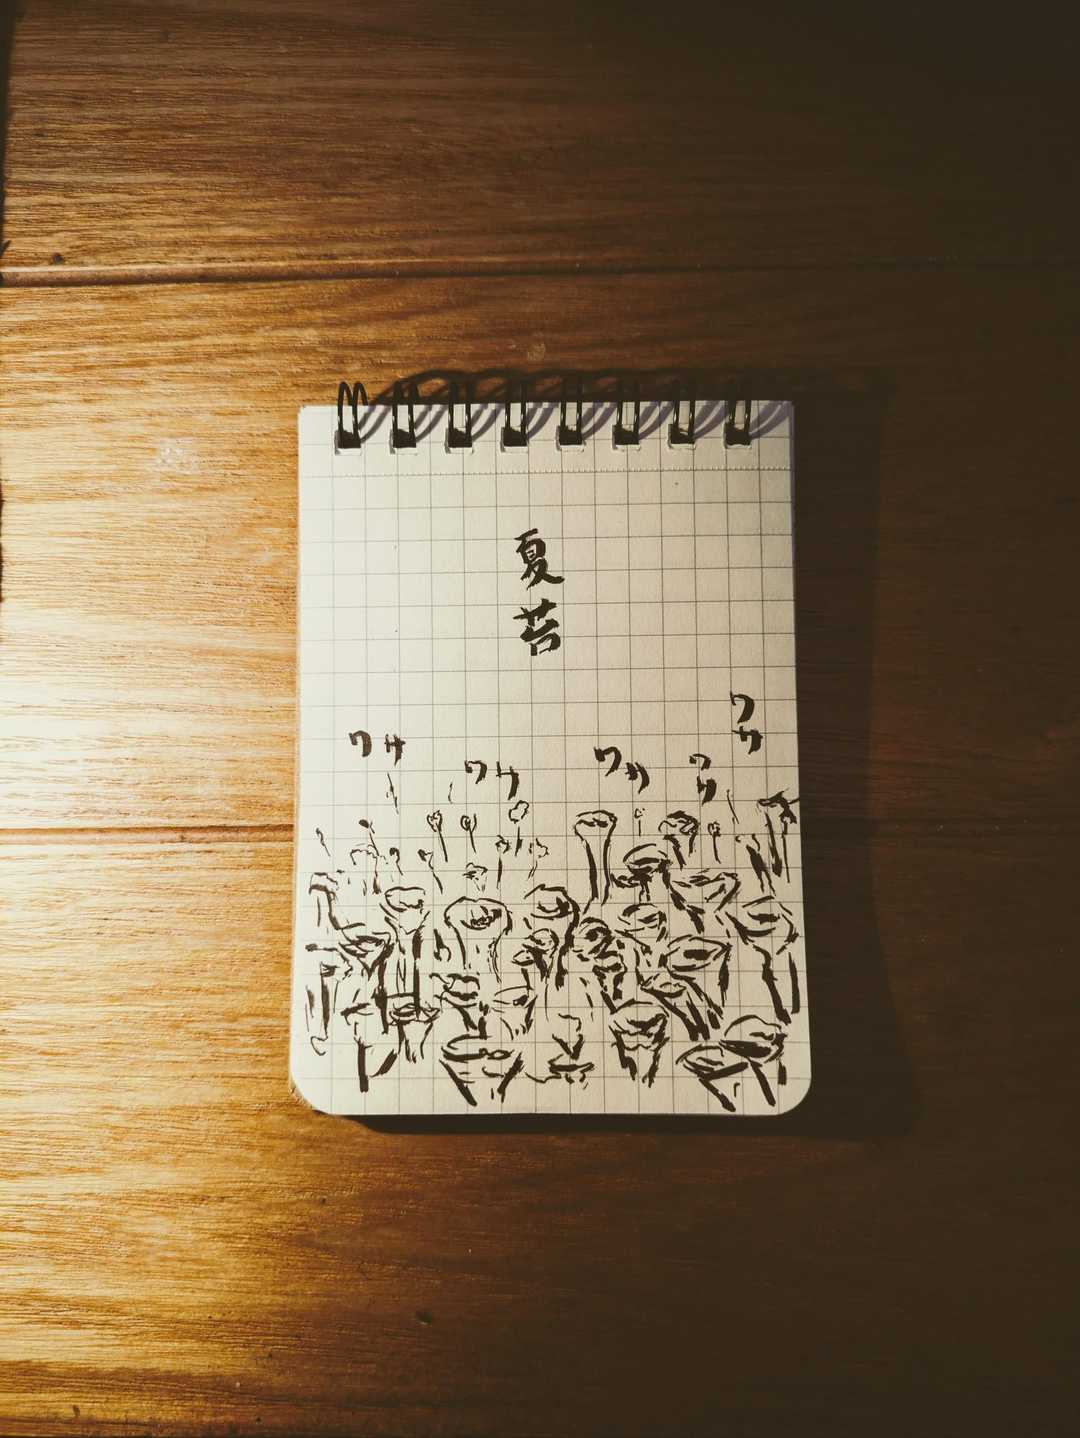 夏
苔
ワサ
ワサ
ワサ
ワサ
ワサ